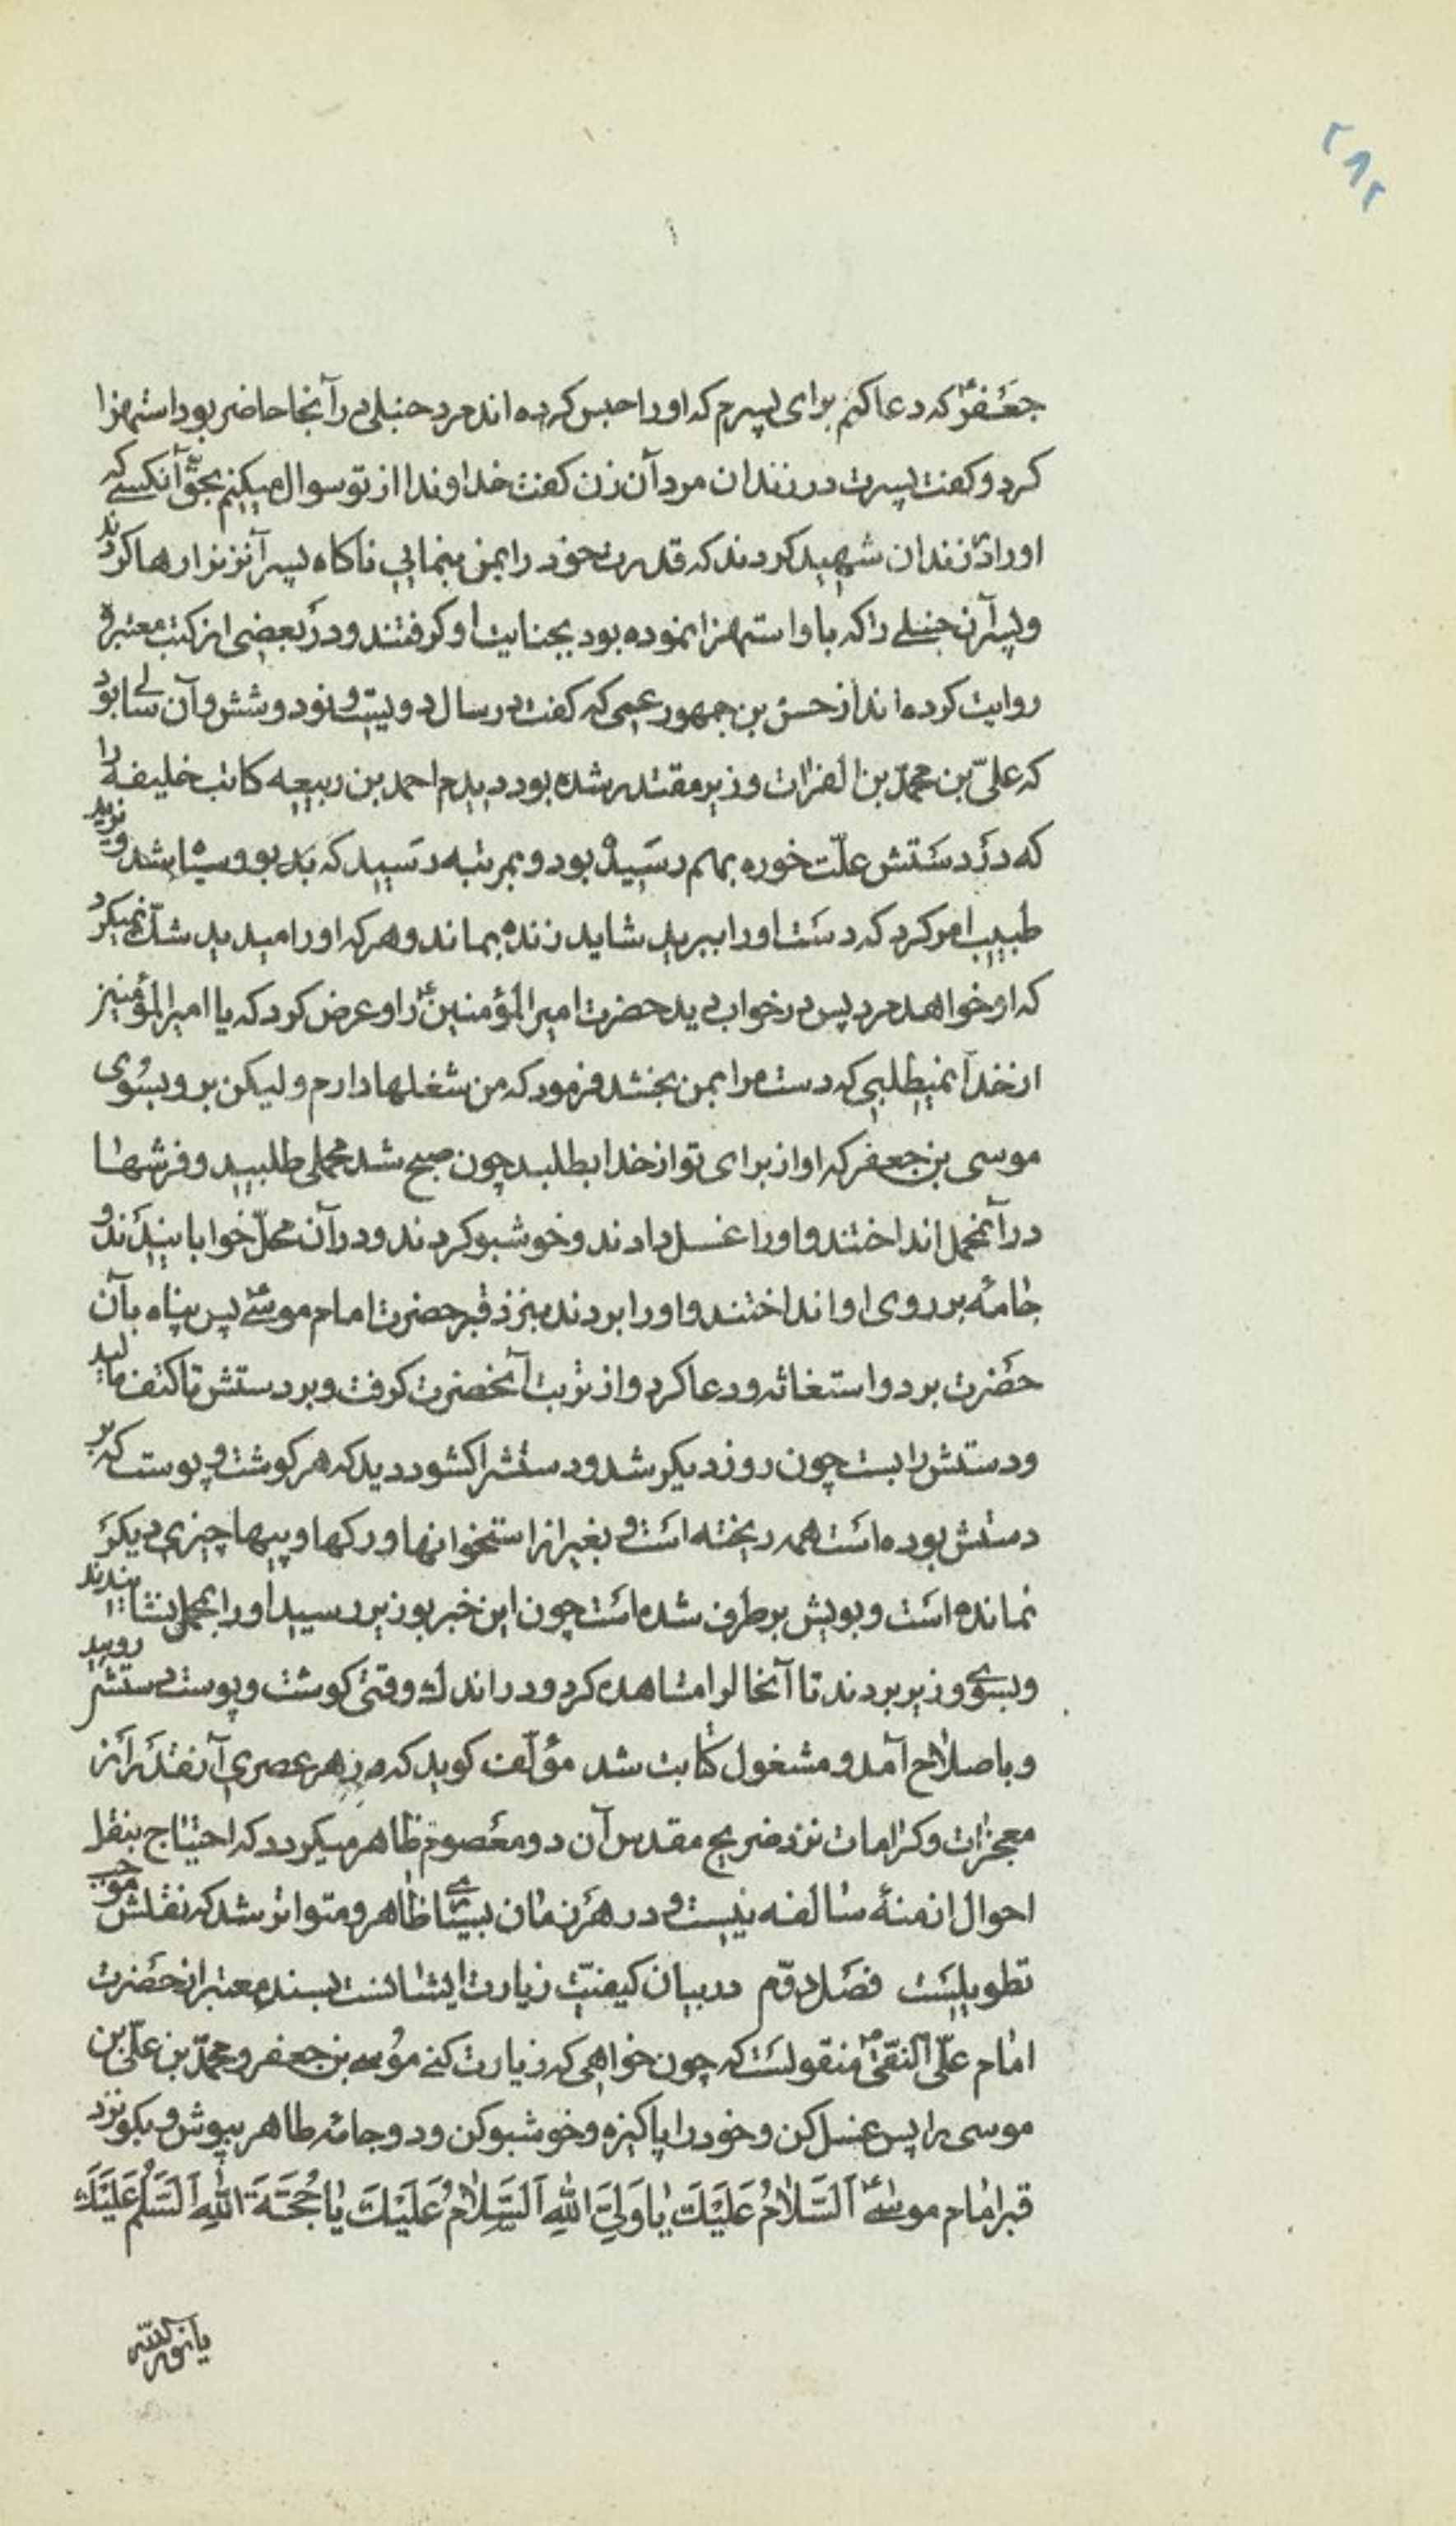 ۲۸۲
جعفرؑ که دعا کنم برای پسرم که او را حبس کرده اند مرد حنبلی در آنجا حاضر بود استهزا
کرد و کفت پسرت در زندان مرد آن زن کفت خداوندا از تو سوال میکنم بحقّ آنکسی که
او را در زندان شهید کردند که قدرت خود را بمن بنمایی ناکاه پسر آنزن را رها کردند
و پسر آن حنبلی را که باو استهزا نموده بود بجنایت او کرفتند و در بعضی از کتب معتبره
روایت کرده اند از حسن بن جمهور عمی که کفت در سال دویست و نود و شش و آن سالی بود
که علیّ بن محمّد بن الفرات وزیر مقتدر شده بود دیدم احمد بن ربیعه کاتب خلیفه را
که در دستش علّت خوره بهم رسیده بود و بمرتبه رسید که بد بو و سیاه شد و نزدید
طبیب امر کرد که دست او را ببرید شاید زنده بماند و هر که او را میدید شکّ نمیکرد
که او خواهد مرد پس در خواب دید حضرت امیر المؤمنینؑ را و عرض کرد که یا امیر المؤمنین
از خدا نمیطلبی که دست مرا بمن بخشد فرمود که من شغلها دارم و لیکن برو بسوی
موسی بن جعفر که او از برای تو از خدا بطلبد چون صبح شد محملی طلبید و فرشها
در آنمحمل انداختند و او را غسل دادند و خوشبو کردند و در آن محمل خوابانیدند و
جامۀ بر روی او انداختند و او را بردند بنزد قبر حضرت امام موسیؑ پس پناه بآن
حضرت برد و استغاثه و دعا کرد و از تربت آنحضرت کرفت و بر دستش تا کتف مالید
و دستش را بست چون روز دیکر شد و دستش را کشود دید که هر کوشت و پوست که بر
دستش بوده است همه ریخته است و بغیر از استخوانها و رکها و پیها چیزی دیکر
نمانده است و بویش بر طرف شده است چون این خبر بوزیر رسید او را بمحمل نشانیدند
و بسوی وزیر بردند تا آنحال را مشاهده کرد و در اندک وقتی کوشت و پوست دستش روییده
و باصلاح آمد و مشغول کتابت شد مؤلّف کوید که در هر عصری آنقدر از
معجزات و کرامات نزد ضریح مقدس آن دو معصوم ظاهر میکردد که احتیاج بنقل
احوال ازمنۀ سالفه نیست و در هر زمان بسیاری ظاهر و متواتر شد که نقلش موجب
تطویلست فصل دوّم در بیان کیفیّت زیارت ایشانست بسند معتبر از حضرت
امام علیّ النقیؑ منقولست که چون خواهی که زیارت کنی موسی بن جعفر و محمّد بن علیّ بن
موسی را پس غسل کن و خود را پاکیزه و خوشبو کن و دو جامۀ طاهر بپوش و بکو نزد
قبر امام موسیؑ اَلسَّلامُ عَلَیْكَ یا وَلِیَّ اللهِ اَلسَّلامُ عَلَیْكَ یا حُجَّةَ اللهِ اَلسَّلامُ عَلَیْكَ
یا نور الله